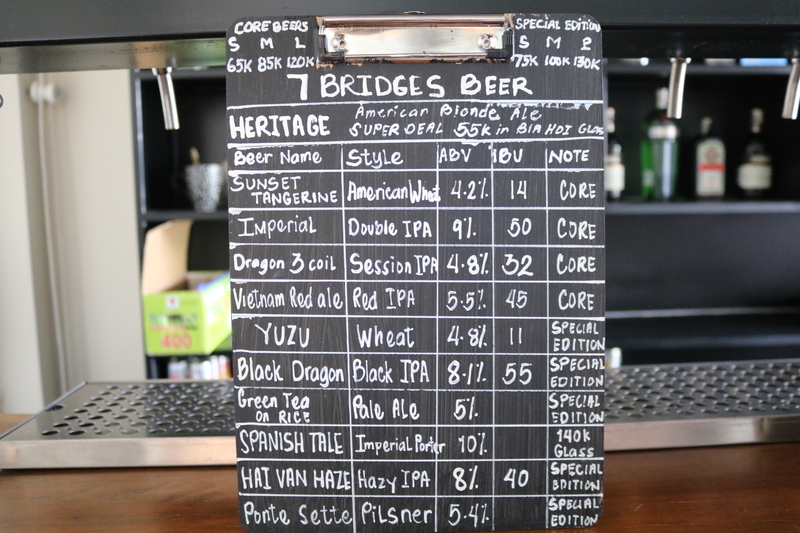 CORE BEERS
S M L
65K 85K 120K
SPECIAL EDITION
S M L
75K 100K 130K
7 BRIDGES BEER
HERITAGE American Blonde Ale
SUPER DEAL 55K in BIA HOI GLASS
Beer Name Style ABV IBU NOTE
SUNSET TANGERINE American Wheat 4.2% 14 CORE
Imperial Double IPA 9% 50 CORE
Dragon 3 coil Session IPA 4.8% 32 CORE
Vietnam Red ale Red IPA 5.5% 45 CORE
YUZU Wheat 4.8% 11 SPECIAL EDITION
Black Dragon Black IPA 8.1% 55 SPECIAL EDITION
Green Tea ON RICE Pale Ale 5% SPECIAL EDITION
SPANISH TALE Imperial Porter 10% 140K Glass
HAI VAN HAZE Hazy IPA 8% 40 SPECIAL EDITION
Ponte Sette PiLSner 5.4% SPECIAL EDITION
400